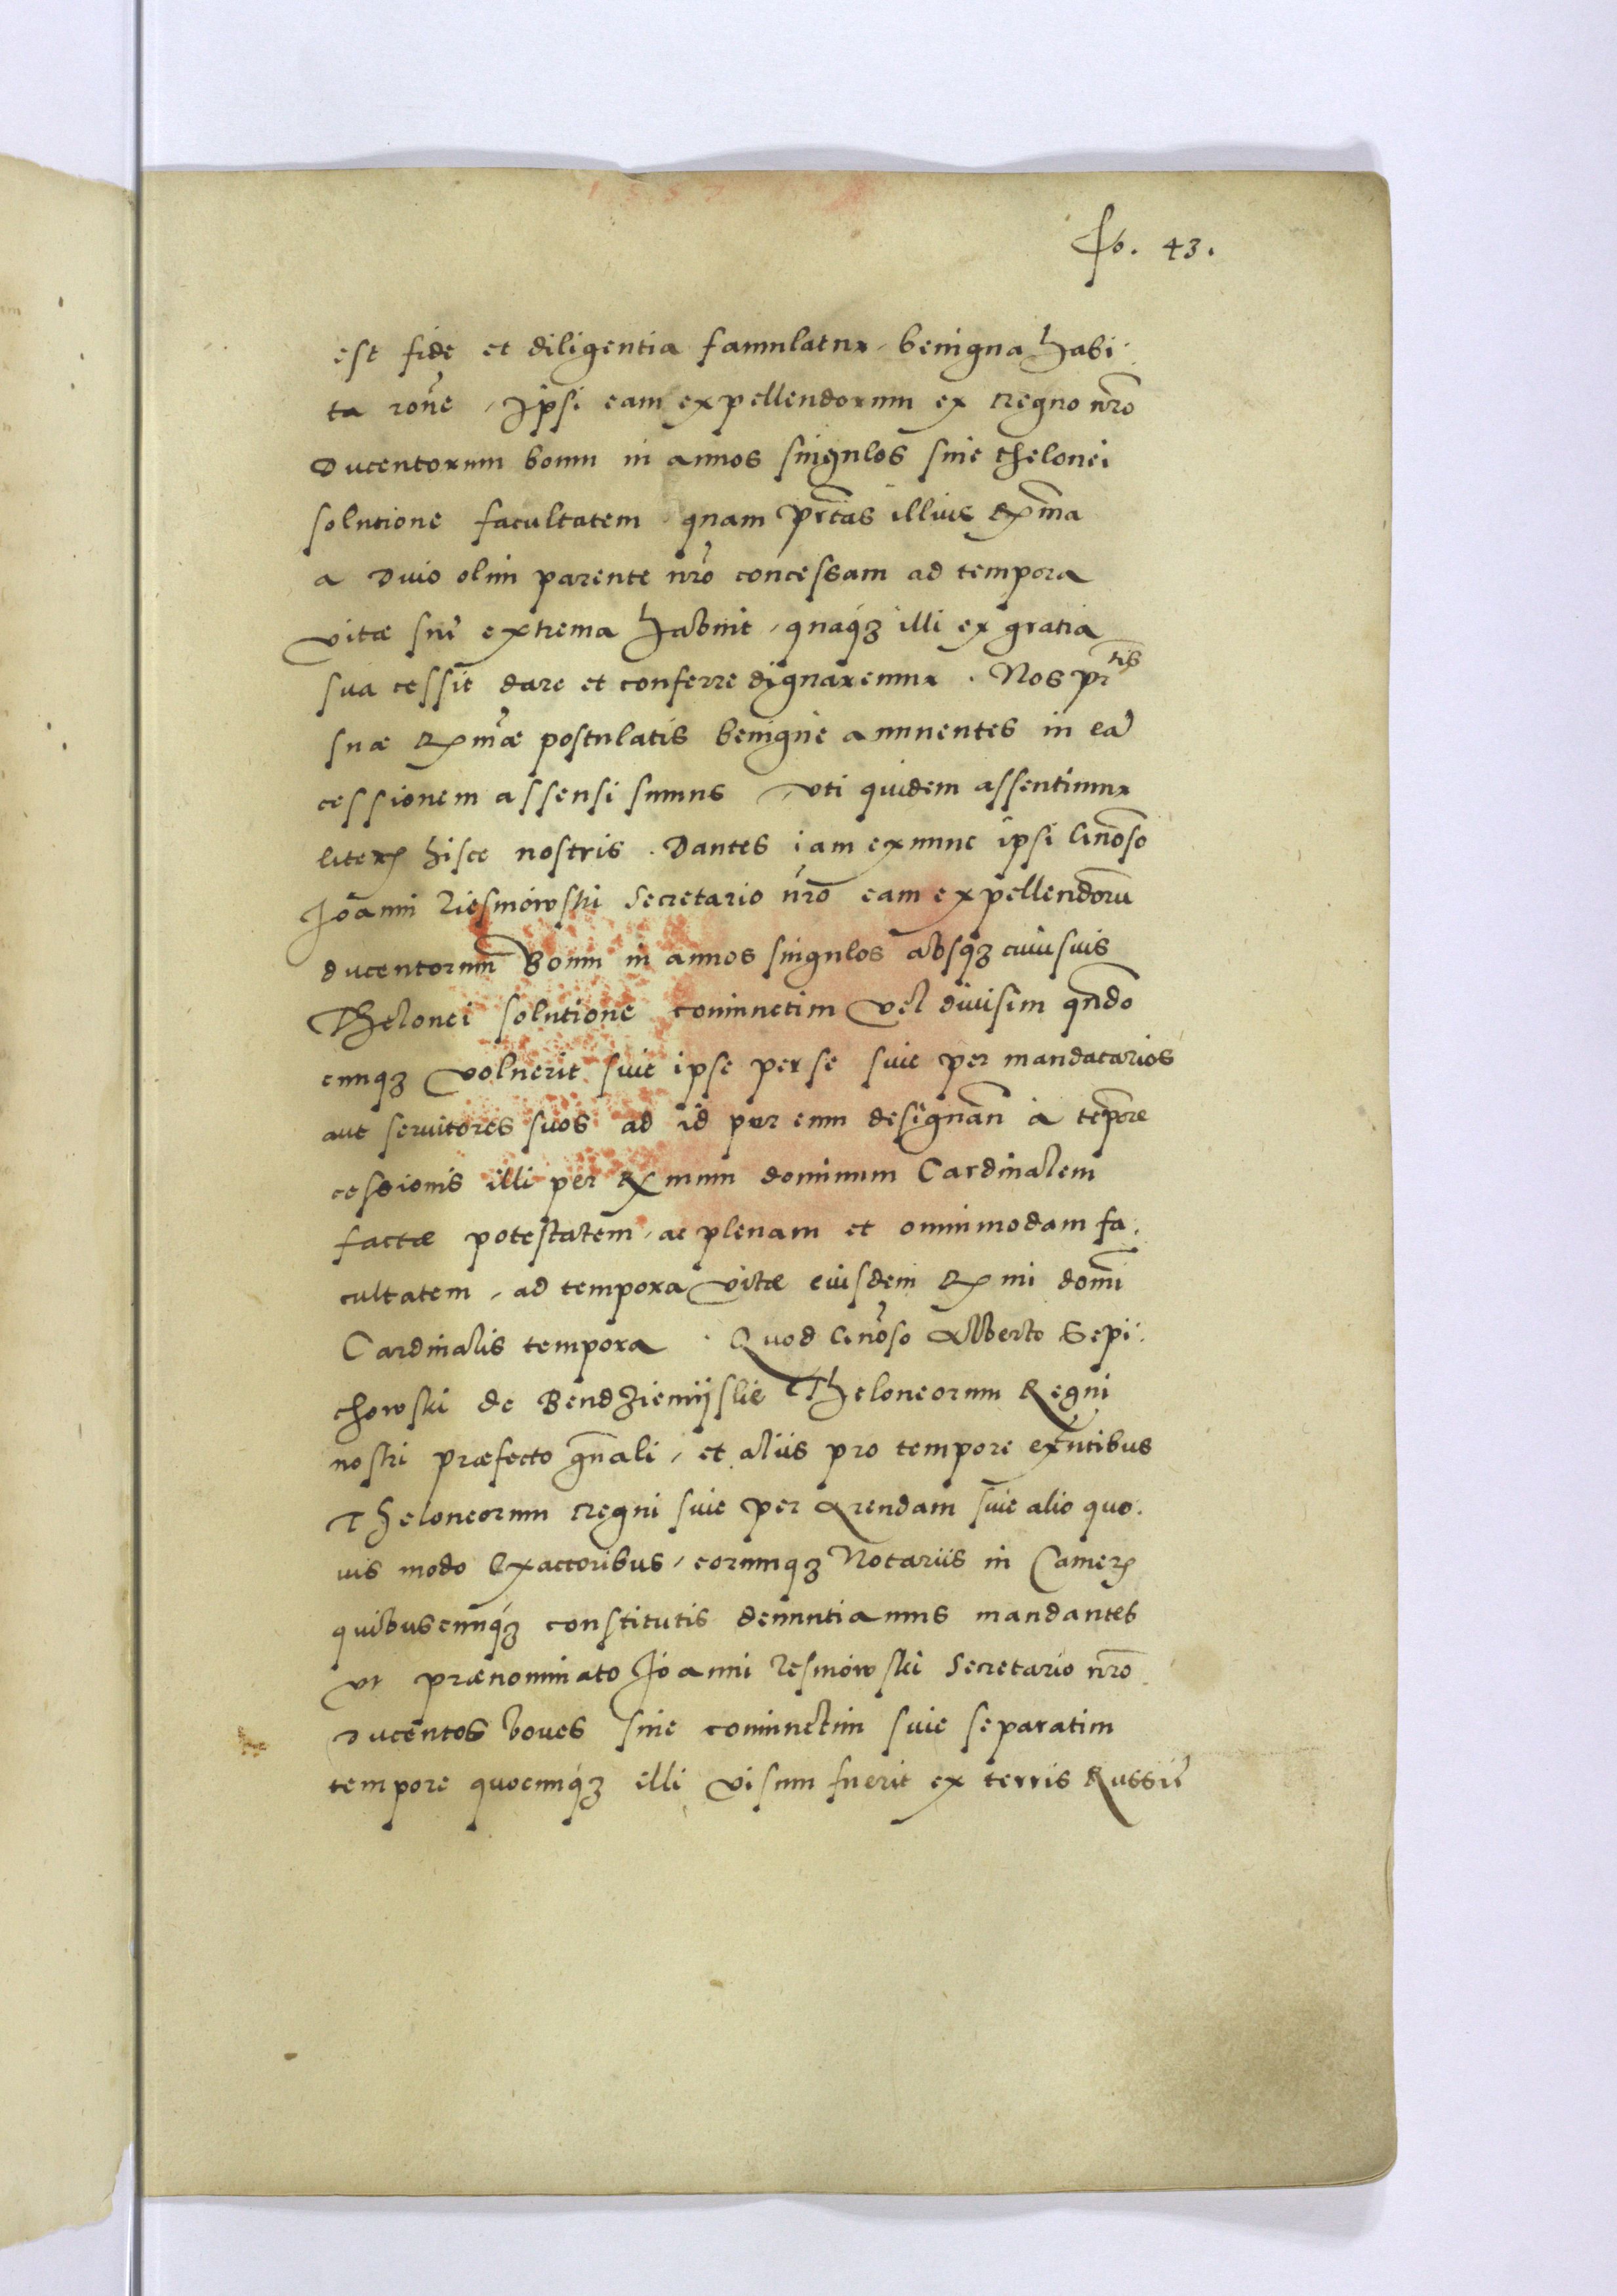 fo. 43.
est fide et diligentia famulatur, benigna habi¬
ta rõne, Ipsi eam expellendorum ex regno nr̃o
Ducentorum boum in annos singulos sine thelonei
solutione facultatem quam pr̃tas illius Rx̃ma
a Diuo olim parente nr̃o concessam ad tempora
vitæ suæ extrema habuit, quaq́ȝ illi ex gratia
sua cessit dare et conferre dignaremur. Nos pr̃tis
suæ Rxm̃æ postulatis benigne annuentes in eã
cessionem assensi sumus, vti quidem assentimur
literis hisce nostris. Dantes iam exnunc ipsi Gnõso
Joanni Riesinowski Secretario nr̃o eam expellendorũ
ducentorum̃ Boum in annos singulos absqȝ cuiusuis
Thelonei solutione coniunctim vel diuisim qñdo
cunqȝ voluerit siue ipse per se siue per mandatarios
aut seruitores suos ad id per eum designañ à tem̃pore
cessionis illi per Rxmum dominum Cardinalem
factæ potestatem, ac plenam et omnimodam fa¬
cultatem, ad tempora vitæ eiusdem Rxmi dom̃i
Cardinalis tempora. Quod Gnõso Alberto Sepi¬
chowski de Bendziemijslie Theloneorum Regni
nostri præfecto gñali, et aliis pro tempore exñtibus
Theloneorum regni siue per Arendam siue alio quo¬
uis modo Exactoribus, eorumqȝ Notariis in Cameris
quibuscunq́ȝ constitutis denuntiamus mandantes
vt prænominato Joanni Resinowski Secretario nr̃o
ducentos boues siue coniunctim siue separatim
tempore quocunq́ȝ illi visum fuerit ex terris Russiæ